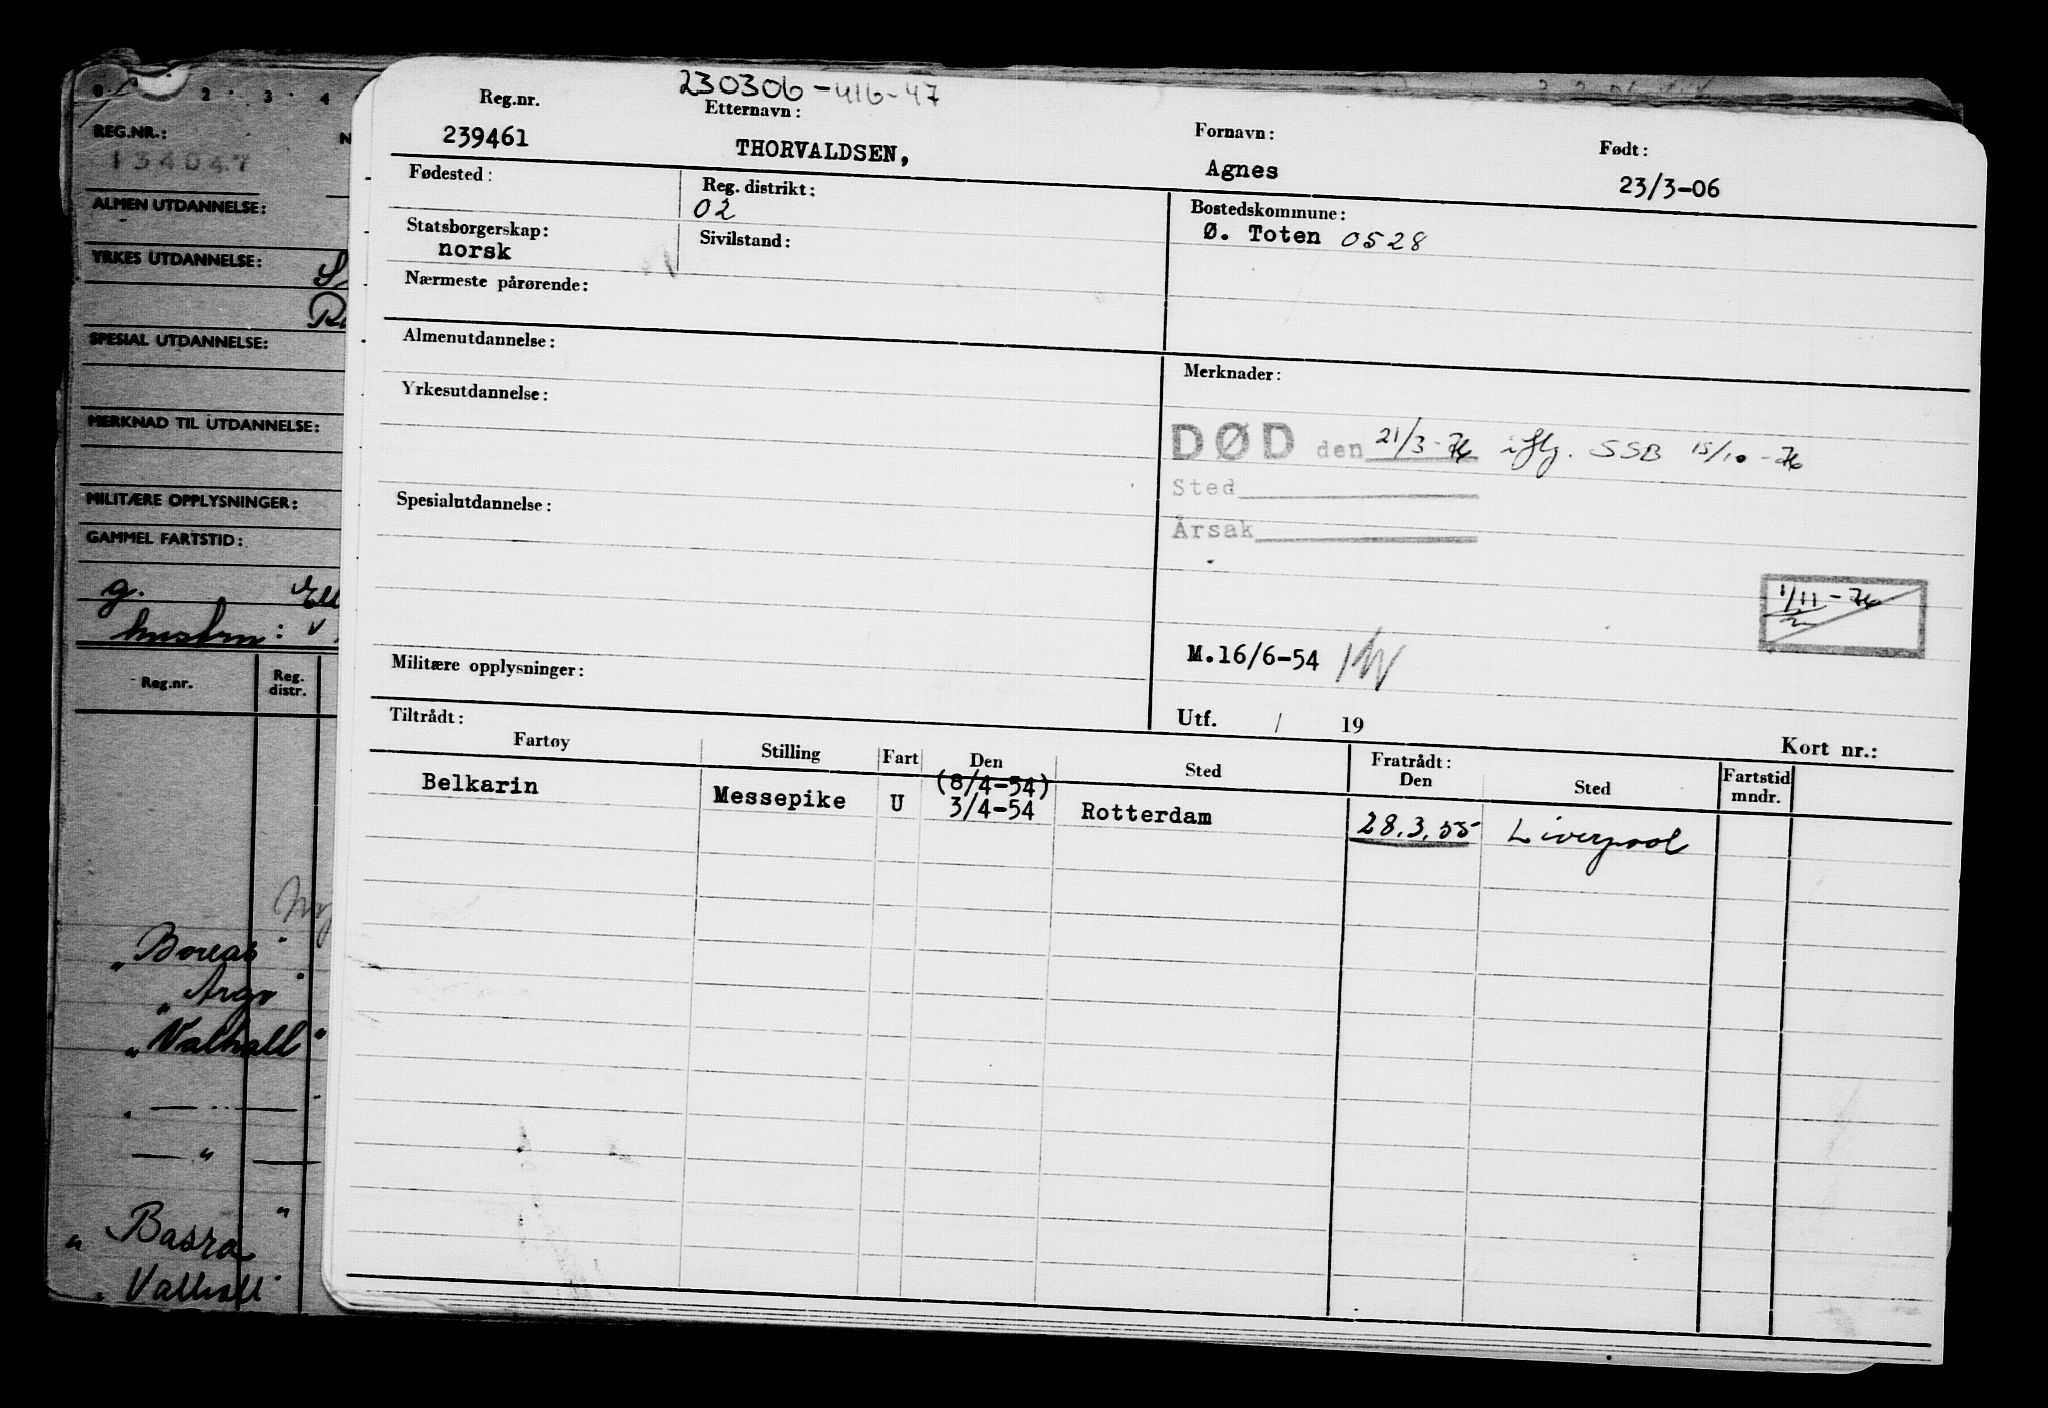 230306-416-47
Reg.nr. Etternavn: Fornavn: Født:
239461 THORVALDSEN, Agnes 23/3-06
Fødested: Reg. distrikt: Bostedskommune:
02 Ø. Toten 0528
Statsborgerskap: Sivilstand:
norsk
Nærmeste pårørende:
Almenutdannelse: Merknader:
Yrkesutdannelse:
DØD den 21/3-76 iflg. SSB 15/10-76
Sted
Spesialutdannelse: Årsak
1/11-76
M.16/6-54
Militære opplysninger:
Utf. / 19 Kort nr.:
Tiltrådt: Fratrådt:
Fartøy Stilling Fart Den Sted Den Sted Fartstid mndr.
(8/4-54)
Belkarin Messepike U 3/4-54 Rotterdam 28.3.55 Liverpool
0 2 3 4
REG.NR.: N
134047
ALMEN UTDANNELSE:
YRKES UTDANNELSE:
SPESIAL UTDANNELSE:
MERKNAD TIL UTDANNELSE:
MILITÆRE OPPLYSNINGER:
GAMMEL FARTSTID:
g.
Reg.nr. Reg. distr.
"Boreas"
"Argo"
"Valhall"
" — "
— " —
"Basra"
"Valhall"